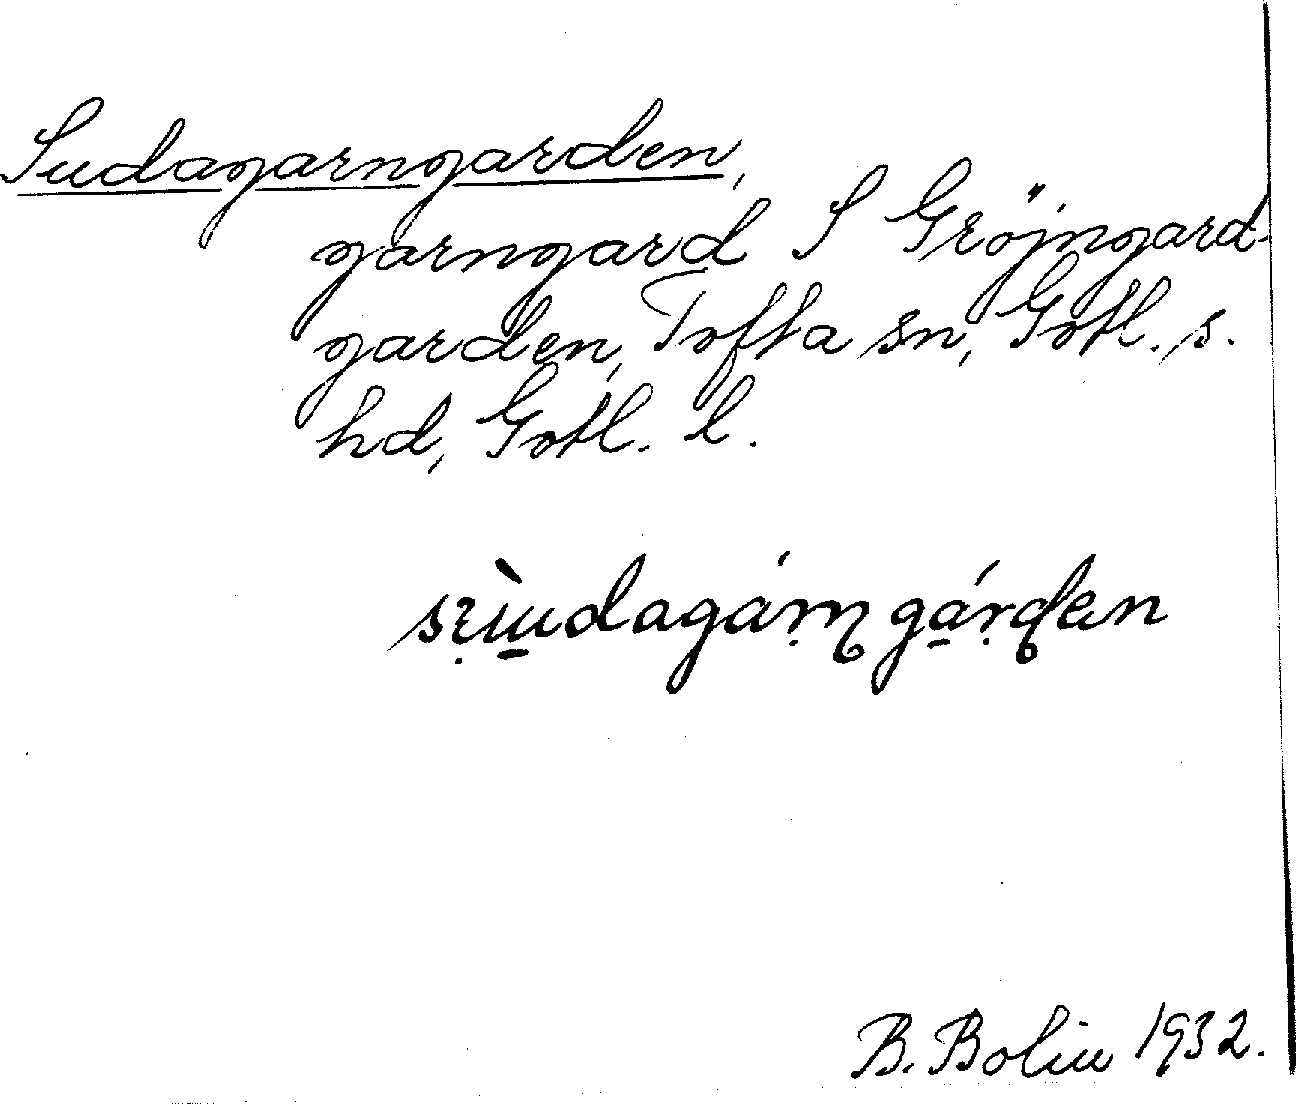 Sudagarngarden,
garngard S Gröjngard-
garden, Tofta sn, Gotl. s.
hd, Gotl. l.
B. Bolin 1932.